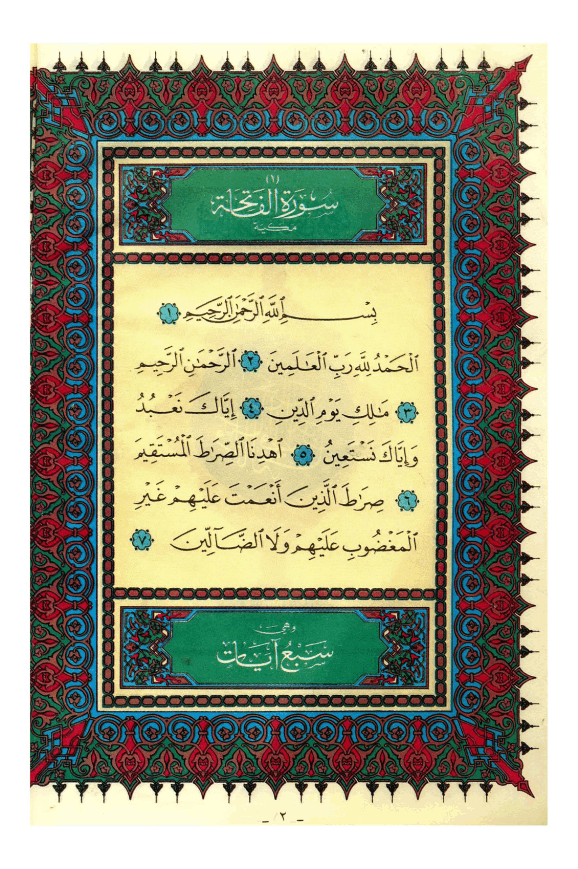 (١)
سُورَةُ الفَاتِحَة
مكية
بِسْمِ ٱللَّهِ ٱلرَّحْمَٰنِ ٱلرَّحِيمِ ١
ٱلْحَمْدُ لِلَّهِ رَبِّ ٱلْعَٰلَمِينَ ٢ ٱلرَّحْمَٰنِ ٱلرَّحِيمِ
٣ مَٰلِكِ يَوْمِ ٱلدِّينِ ٤ إِيَّاكَ نَعْبُدُ
وَإِيَّاكَ نَسْتَعِينُ ٥ ٱهْدِنَا ٱلصِّرَٰطَ ٱلْمُسْتَقِيمَ
٦ صِرَٰطَ ٱلَّذِينَ أَنْعَمْتَ عَلَيْهِمْ غَيْرِ
ٱلْمَغْضُوبِ عَلَيْهِمْ وَلَا ٱلضَّآلِّينَ ٧
وَهِيَ
سَبْعُ آيَات
- ٢ -